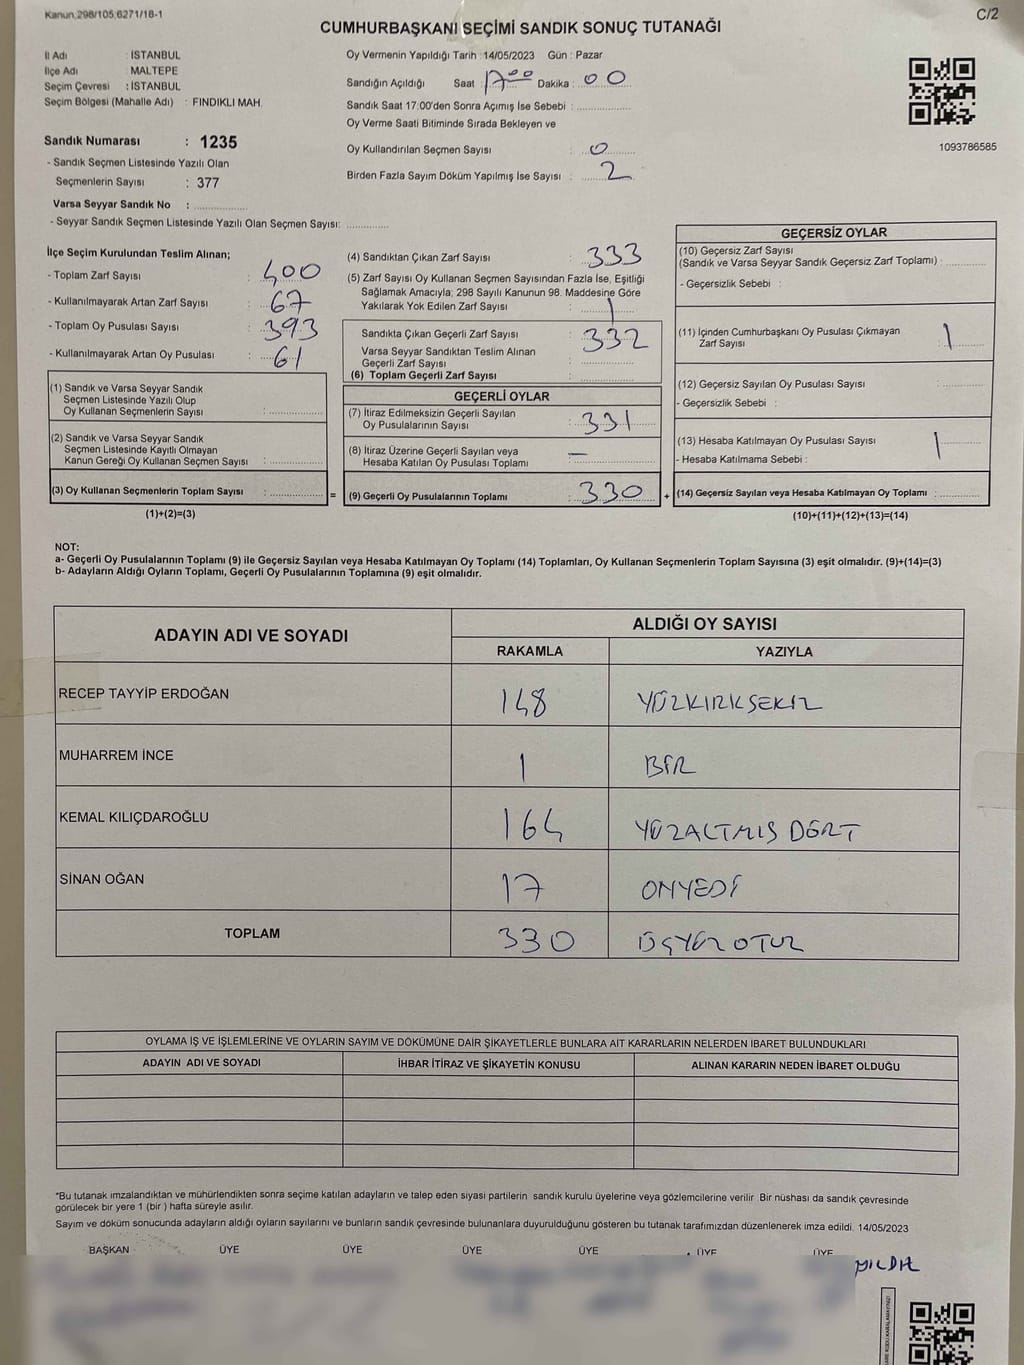 Kanun,298/105,6271/18-1
C/2
CUMHURBAŞKANI SEÇİMİ SANDIK SONUÇ TUTANAĞI
İl Adı : İSTANBUL
İlçe Adı : MALTEPE
Seçim Çevresi : İSTANBUL
Seçim Bölgesi (Mahalle Adı) : FINDIKLI MAH.
Oy Vermenin Yapıldığı Tarih : 14/05/2023 Gün : Pazar
Sandığın Açıldığı Saat 17:00 Dakika : 00
Sandık Saat 17:00'den Sonra Açımış İse Sebebi :
Oy Verme Saati Bitiminde Sırada Bekleyen ve
Oy Kullandırılan Seçmen Sayısı : 0
Birden Fazla Sayım Döküm Yapılmış İse Sayısı : 2
1093786585
Sandık Numarası : 1235
- Sandık Seçmen Listesinde Yazılı Olan
Seçmenlerin Sayısı : 377
Varsa Seyyar Sandık No :
- Seyyar Sandık Seçmen Listesinde Yazılı Olan Seçmen Sayısı:
İlçe Seçim Kurulundan Teslim Alınan;
- Toplam Zarf Sayısı : 400
- Kullanılmayarak Artan Zarf Sayısı : 67
- Toplam Oy Pusulası Sayısı : 393
- Kullanılmayarak Artan Oy Pusulası : 61
(1) Sandık ve Varsa Seyyar Sandık
Seçmen Listesinde Yazılı Olup
Oy Kullanan Seçmenlerin Sayısı :
(2) Sandık ve Varsa Seyyar Sandık
Seçmen Listesinde Kayıtlı Olmayan
Kanun Gereği Oy Kullanan Seçmen Sayısı :
(3) Oy Kullanan Seçmenlerin Toplam Sayısı : =
(1)+(2)=(3)
(4) Sandıktan Çıkan Zarf Sayısı : 333
(5) Zarf Sayısı Oy Kullanan Seçmen Sayısından Fazla İse, Eşitliği
Sağlamak Amacıyla, 298 Sayılı Kanunun 98. Maddesine Göre
Yakılarak Yok Edilen Zarf Sayısı : 1
Sandıkta Çıkan Geçerli Zarf Sayısı : 332
Varsa Seyyar Sandıktan Teslim Alınan
Geçerli Zarf Sayısı :
(6) Toplam Geçerli Zarf Sayısı :
GEÇERLİ OYLAR
(7) İtiraz Edilmeksizin Geçerli Sayılan
Oy Pusulalarının Sayısı : 331
(8) İtiraz Üzerine Geçerli Sayılan veya
Hesaba Katılan Oy Pusulası Toplamı : —
(9) Geçerli Oy Pusulalarının Toplamı : 330 +
GEÇERSİZ OYLAR
(10) Geçersiz Zarf Sayısı
(Sandık ve Varsa Seyyar Sandık Geçersiz Zarf Toplamı) :
- Geçersizlik Sebebi :
(11) İçinden Cumhurbaşkanı Oy Pusulası Çıkmayan
Zarf Sayısı : 1
(12) Geçersiz Sayılan Oy Pusulası Sayısı :
- Geçersizlik Sebebi :
(13) Hesaba Katılmayan Oy Pusulası Sayısı : 1
- Hesaba Katılmama Sebebi :
(14) Geçersiz Sayılan veya Hesaba Katılmayan Oy Toplamı :
(10)+(11)+(12)+(13)=(14)
NOT:
a- Geçerli Oy Pusulalarının Toplamı (9) ile Geçersiz Sayılan veya Hesaba Katılmayan Oy Toplamı (14) Toplamları, Oy Kullanan Seçmenlerin Toplam Sayısına (3) eşit olmalıdır. (9)+(14)=(3)
b- Adayların Aldığı Oyların Toplamı, Geçerli Oy Pusulalarının Toplamına (9) eşit olmalıdır.
ADAYIN ADI VE SOYADI
ALDIĞI OY SAYISI
RAKAMLA YAZIYLA
RECEP TAYYİP ERDOĞAN 148 YÜZKIRKSEKİZ
MUHARREM İNCE 1 BİR
KEMAL KILIÇDAROĞLU 164 YÜZALTMIŞ DÖRT
SİNAN OĞAN 17 ONYEDİ
TOPLAM 330 ÜÇYÜZ OTUZ
OYLAMA İŞ VE İŞLEMLERİNE VE OYLARIN SAYIM VE DÖKÜMÜNE DAİR ŞİKAYETLERLE BUNLARA AİT KARARLARIN NELERDEN İBARET BULUNDUKLARI
ADAYIN ADI VE SOYADI İHBAR İTİRAZ VE ŞİKAYETİN KONUSU ALINAN KARARIN NEDEN İBARET OLDUĞU
*Bu tutanak imzalandıktan ve mühürlendikten sonra seçime katılan adayların ve talep eden siyasi partilerin sandık kurulu üyelerine veya gözlemcilerine verilir. Bir nüshası da sandık çevresinde
görülecek bir yere 1 (bir ) hafta süreyle asılır.
Sayım ve döküm sonucunda adayların aldığı oyların sayılarını ve bunların sandık çevresinde bulunanlara duyurulduğunu gösteren bu tutanak tarafımızdan düzenlenerek imza edildi. 14/05/2023
BAŞKAN ÜYE ÜYE ÜYE ÜYE ÜYE ÜYE